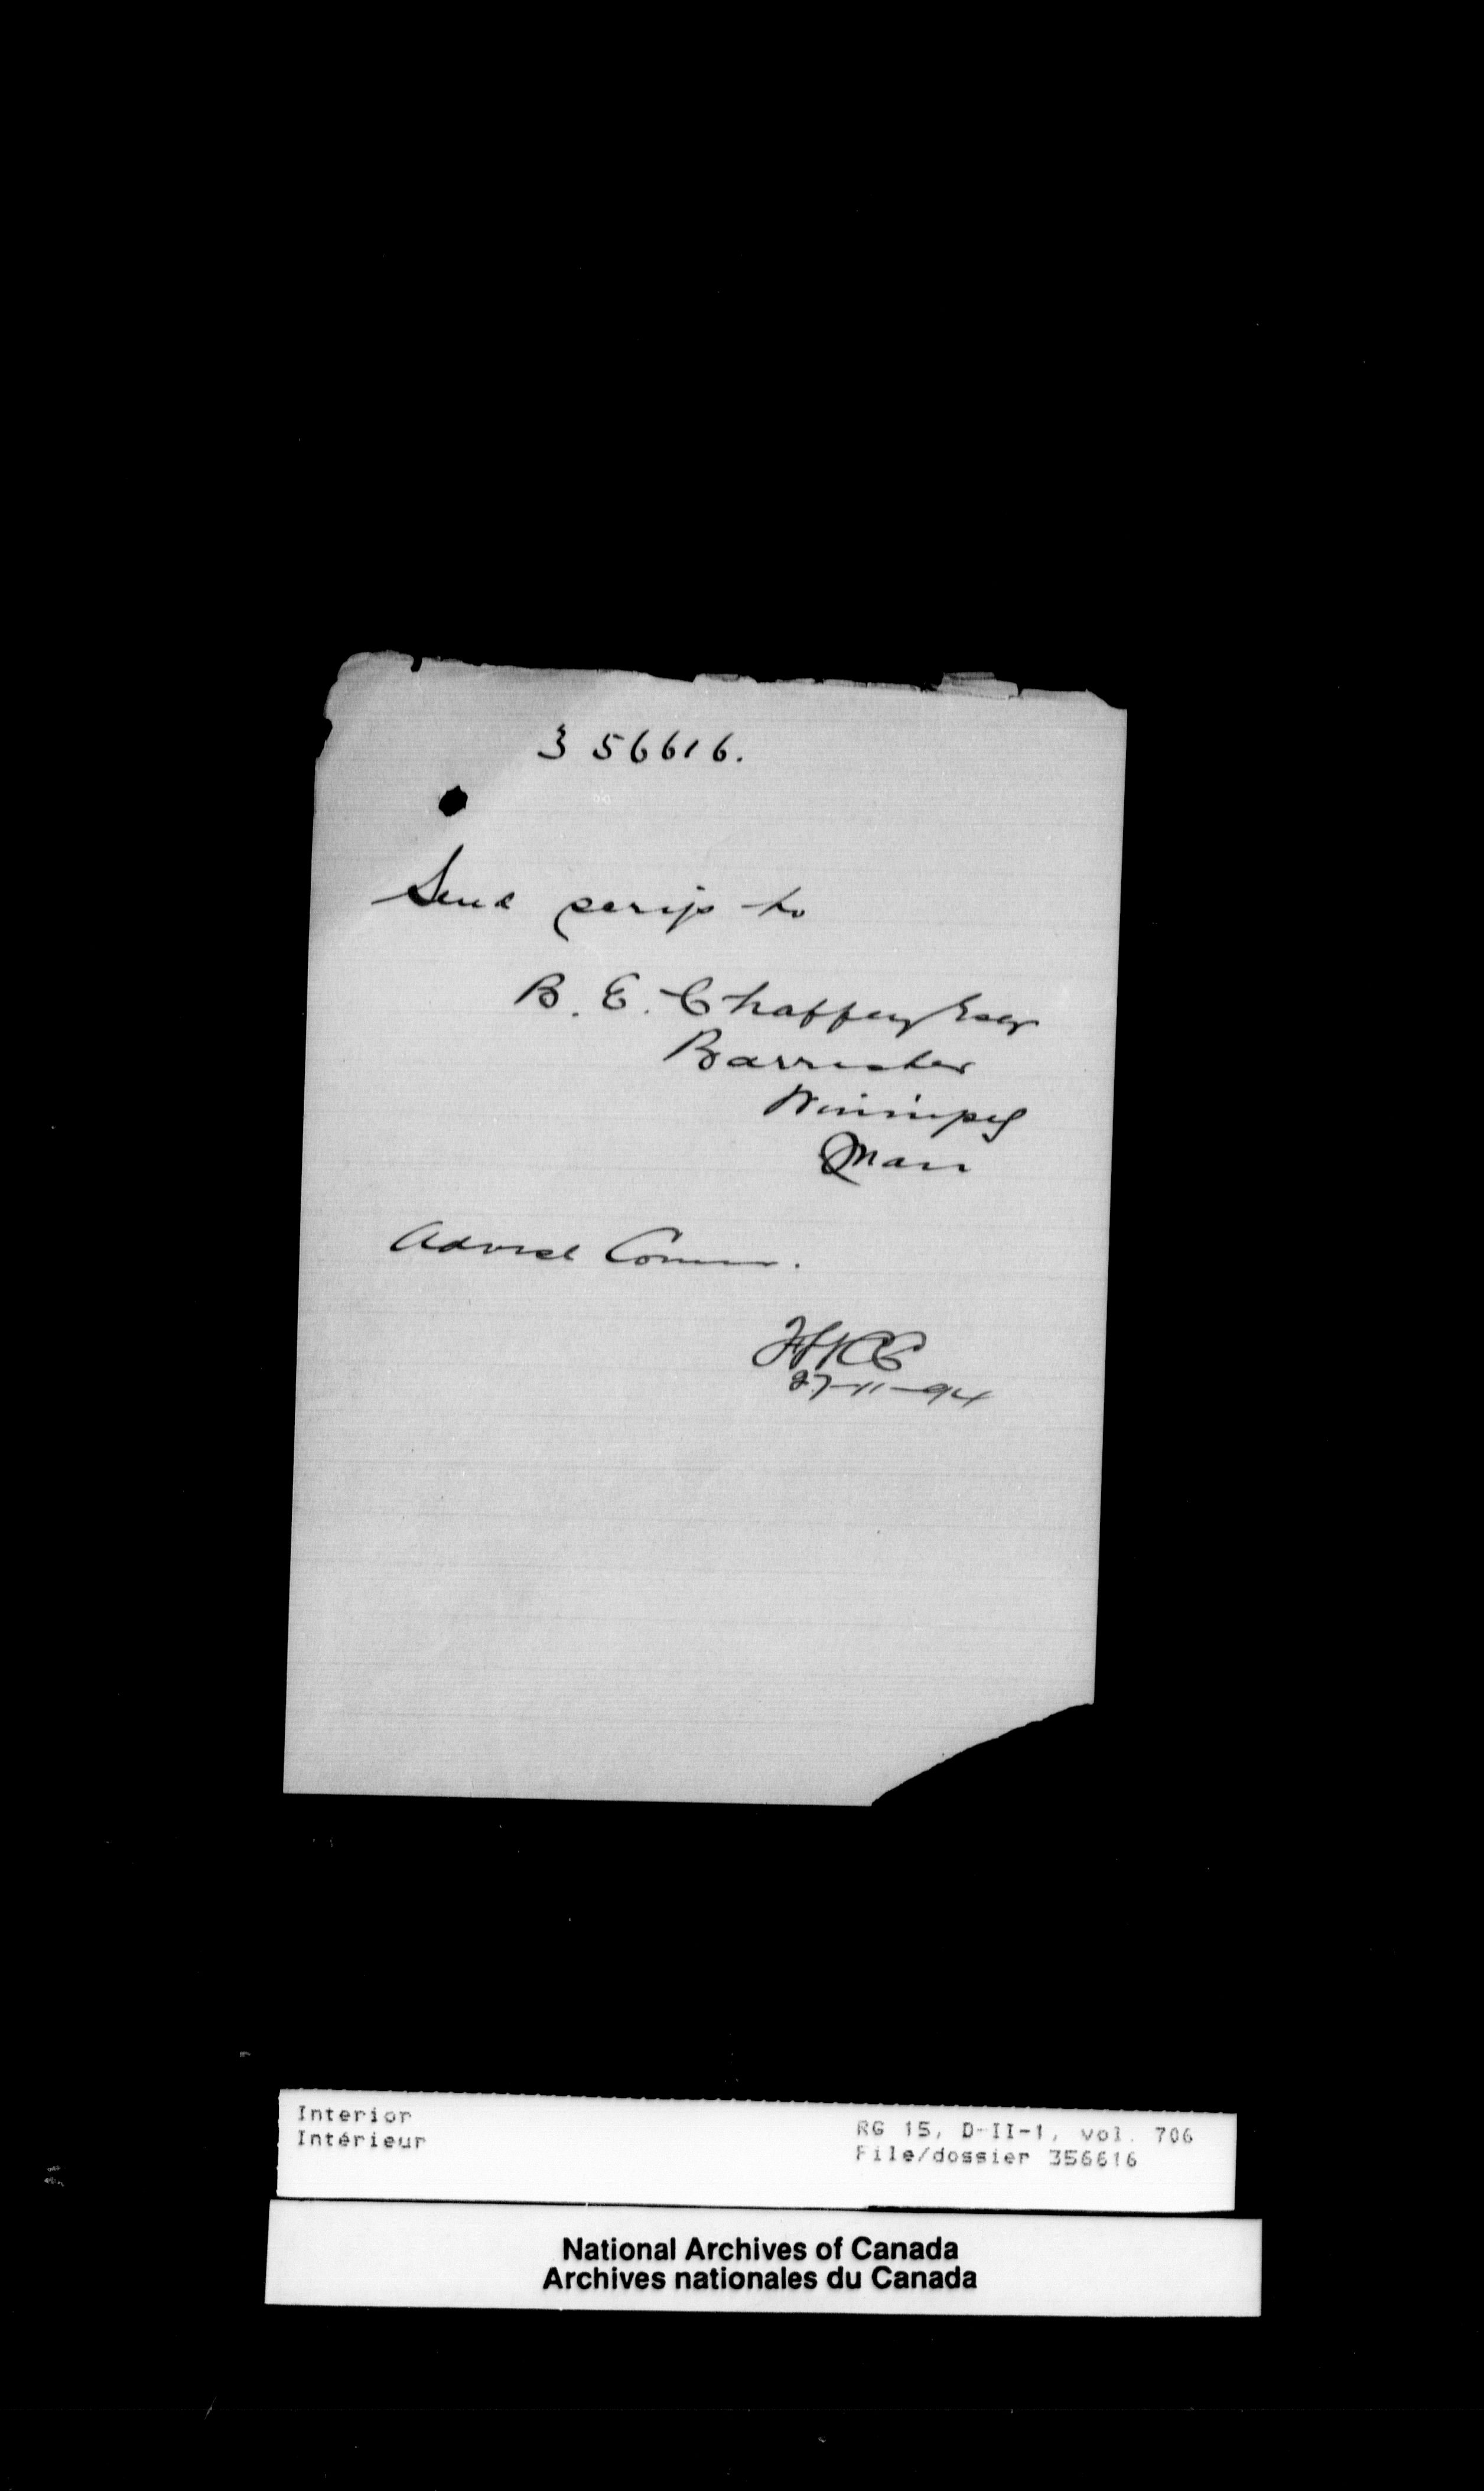 356616.
Send scrip to
B. E. Chaffey Esqr
Barrister
Winnipeg
Man
Advise Commr.
27-11-94
Interior
Intérieur
RG 15, D-II-1, vol. 706
File/dossier 356616
National Archives of Canada
Archives nationales du Canada